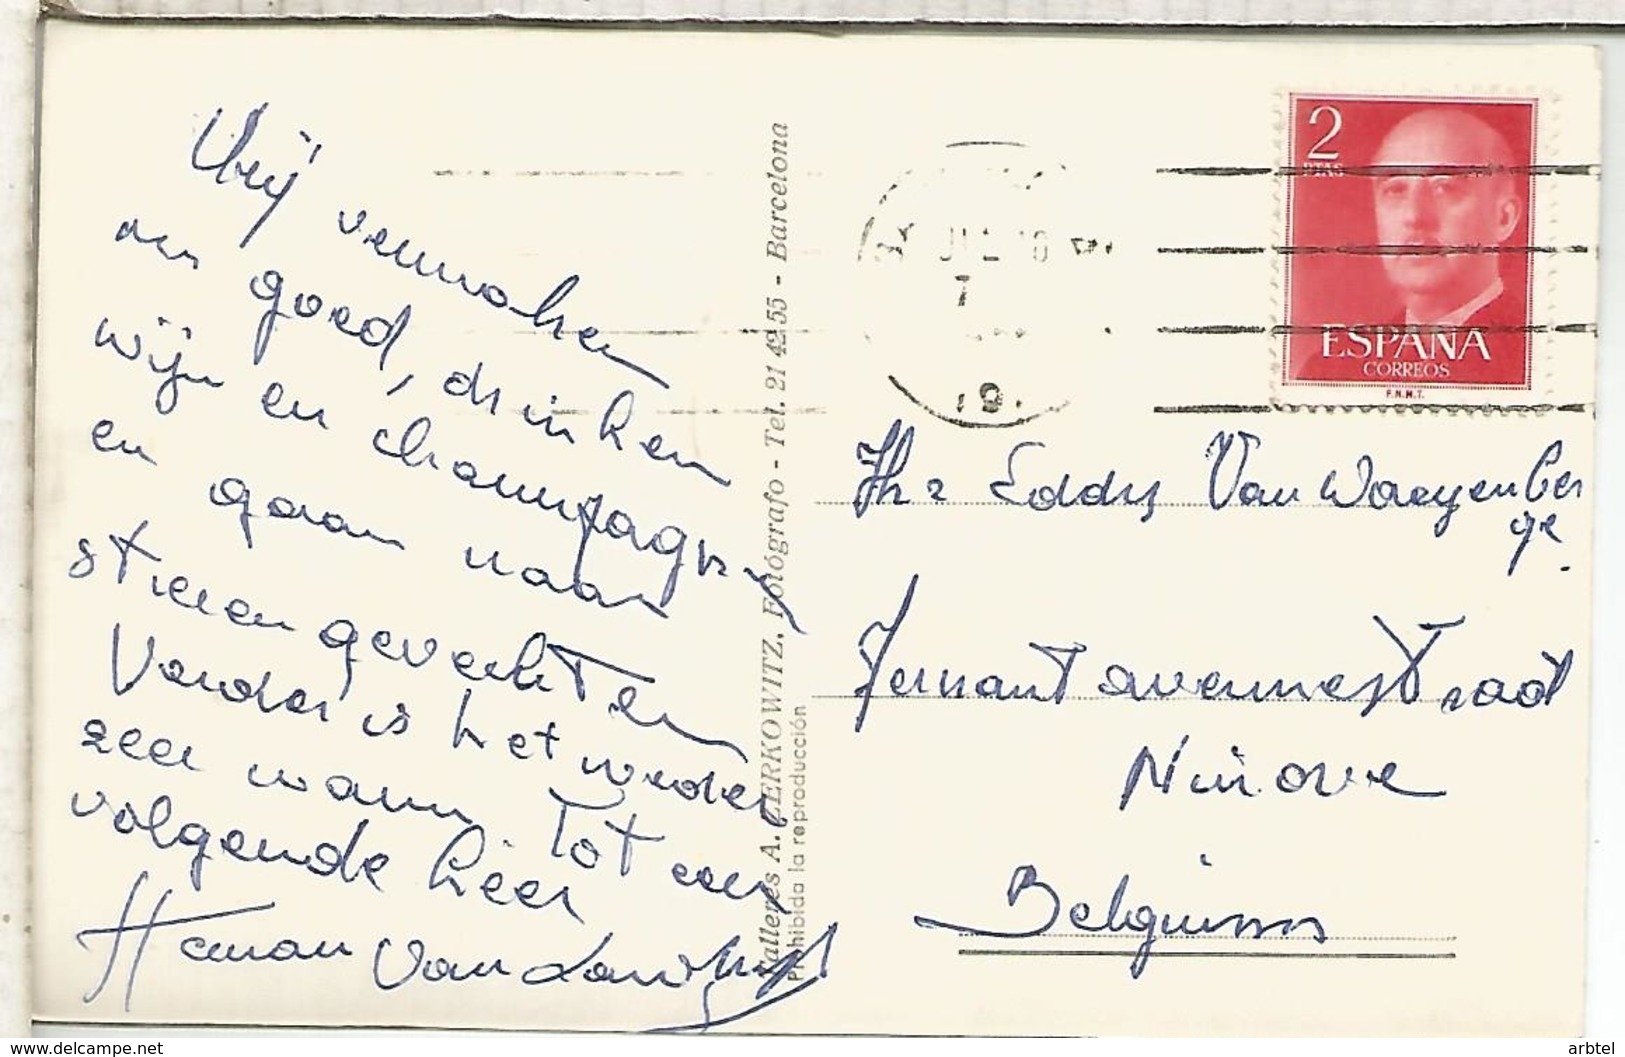 Wij vermaken
ons goed, drinken
wijn en champagne
en gaan naar
stierengevechten
Verder is het weder
zeer warm. Tot een
volgende keer
Herman Van
Talleres A. ZERKOWITZ, Fotógrafo - Tel. 21 42 55 - Barcelona
Prohibida la reproducción
2
PTAS
ESPAÑA
CORREOS
F.N.M.T.
7
19
Eddy Van Waeyenber
ge.
Ninove
Belgium
www.delcampe.net
arbtel